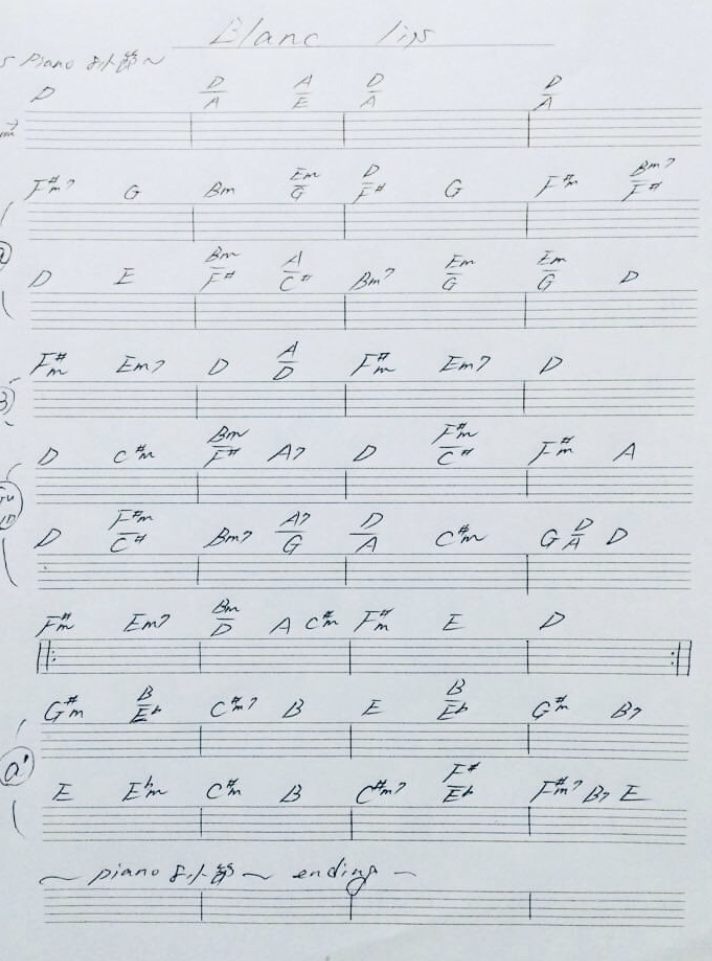 Blanc lips
Piano 8小節〜
D D/A A/E D/A D/A
F#m7 G Bm Em/G D/F# G F#m Bm7/F#
D E Bm/F# A/C# Bm7 Em/G Em/G D
F#m Em7 D A/D F#m Em7 D
D C#m Bm/F# A7 D F#m/C# F#m A
D F#m/C# Bm7 A7/G D/A C#m G D/A D
F#m Em7 Bm/D A C#m F#m E D
G#m B/Eb C#m7 B E B/Eb G#m B7
a'
E Ebm C#m B C#m7 F#/Eb F#m7 B7 E
〜 piano 8小節〜 ending 〜